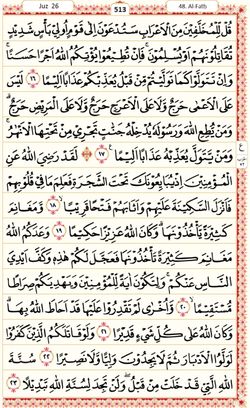 Juz 26 513 48. Al-Fath
قُلْ لِّلْمُخَلَّفِيْنَ مِنَ الْاَعْرَابِ سَتُدْعَوْنَ اِلٰى قَوْمٍ اُولِيْ بَاْسٍ شَدِيْدٍ
تُقَاتِلُوْنَهُمْ اَوْ يُسْلِمُوْنَ ۚ فَاِنْ تُطِيْعُوْا يُؤْتِكُمُ اللّٰهُ اَجْرًا حَسَنًا ۚ
وَاِنْ تَتَوَلَّوْا كَمَا تَوَلَّيْتُمْ مِّنْ قَبْلُ يُعَذِّبْكُمْ عَذَابًا اَلِيْمًا ۝١٦ لَيْسَ
عَلَى الْاَعْمٰى حَرَجٌ وَّلَا عَلَى الْاَعْرَجِ حَرَجٌ وَّلَا عَلَى الْمَرِيْضِ حَرَجٌ ؕ
وَمَنْ يُّطِعِ اللّٰهَ وَرَسُوْلَهٗ يُدْخِلْهُ جَنّٰتٍ تَجْرِيْ مِنْ تَحْتِهَا الْاَنْهٰرُ ۚ
وَمَنْ يَّتَوَلَّ يُعَذِّبْهُ عَذَابًا اَلِيْمًا ۝١٧ لَقَدْ رَضِيَ اللّٰهُ عَنِ
الْمُؤْمِنِيْنَ اِذْ يُبَايِعُوْنَكَ تَحْتَ الشَّجَرَةِ فَعَلِمَ مَا فِيْ قُلُوْبِهِمْ
فَاَنْزَلَ السَّكِيْنَةَ عَلَيْهِمْ وَاَثَابَهُمْ فَتْحًا قَرِيْبًا ۝١٨ وَّمَغَانِمَ
كَثِيْرَةً يَّاْخُذُوْنَهَا ؕ وَكَانَ اللّٰهُ عَزِيْزًا حَكِيْمًا ۝١٩ وَعَدَكُمُ اللّٰهُ
مَغَانِمَ كَثِيْرَةً تَاْخُذُوْنَهَا فَعَجَّلَ لَكُمْ هٰذِهٖ وَكَفَّ اَيْدِيَ
النَّاسِ عَنْكُمْ ۚ وَلِتَكُوْنَ اٰيَةً لِّلْمُؤْمِنِيْنَ وَيَهْدِيَكُمْ صِرَاطًا
مُّسْتَقِيْمًا ۝٢٠ وَّاُخْرٰى لَمْ تَقْدِرُوْا عَلَيْهَا قَدْ اَحَاطَ اللّٰهُ بِهَا ؕ
وَكَانَ اللّٰهُ عَلٰى كُلِّ شَيْءٍ قَدِيْرًا ۝٢١ وَلَوْ قَاتَلَكُمُ الَّذِيْنَ كَفَرُوْا
لَوَلَّوُا الْاَدْبَارَ ثُمَّ لَا يَجِدُوْنَ وَلِيًّا وَّلَا نَصِيْرًا ۝٢٢ سُنَّةَ
اللّٰهِ الَّتِيْ قَدْ خَلَتْ مِنْ قَبْلُ ۖ وَلَنْ تَجِدَ لِسُنَّةِ اللّٰهِ تَبْدِيْلًا ۝٢٣